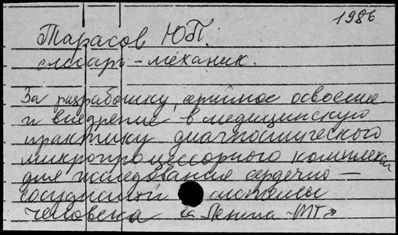 1986
Тарасов Ю.П.
слесарь-механик.
За разработку, освоение
и внедрение в медицинскую
практику диагностического
микропроцессорного комплекса
для исследования сердечно-
сосудистой системы
человека "Ленина-МТ"